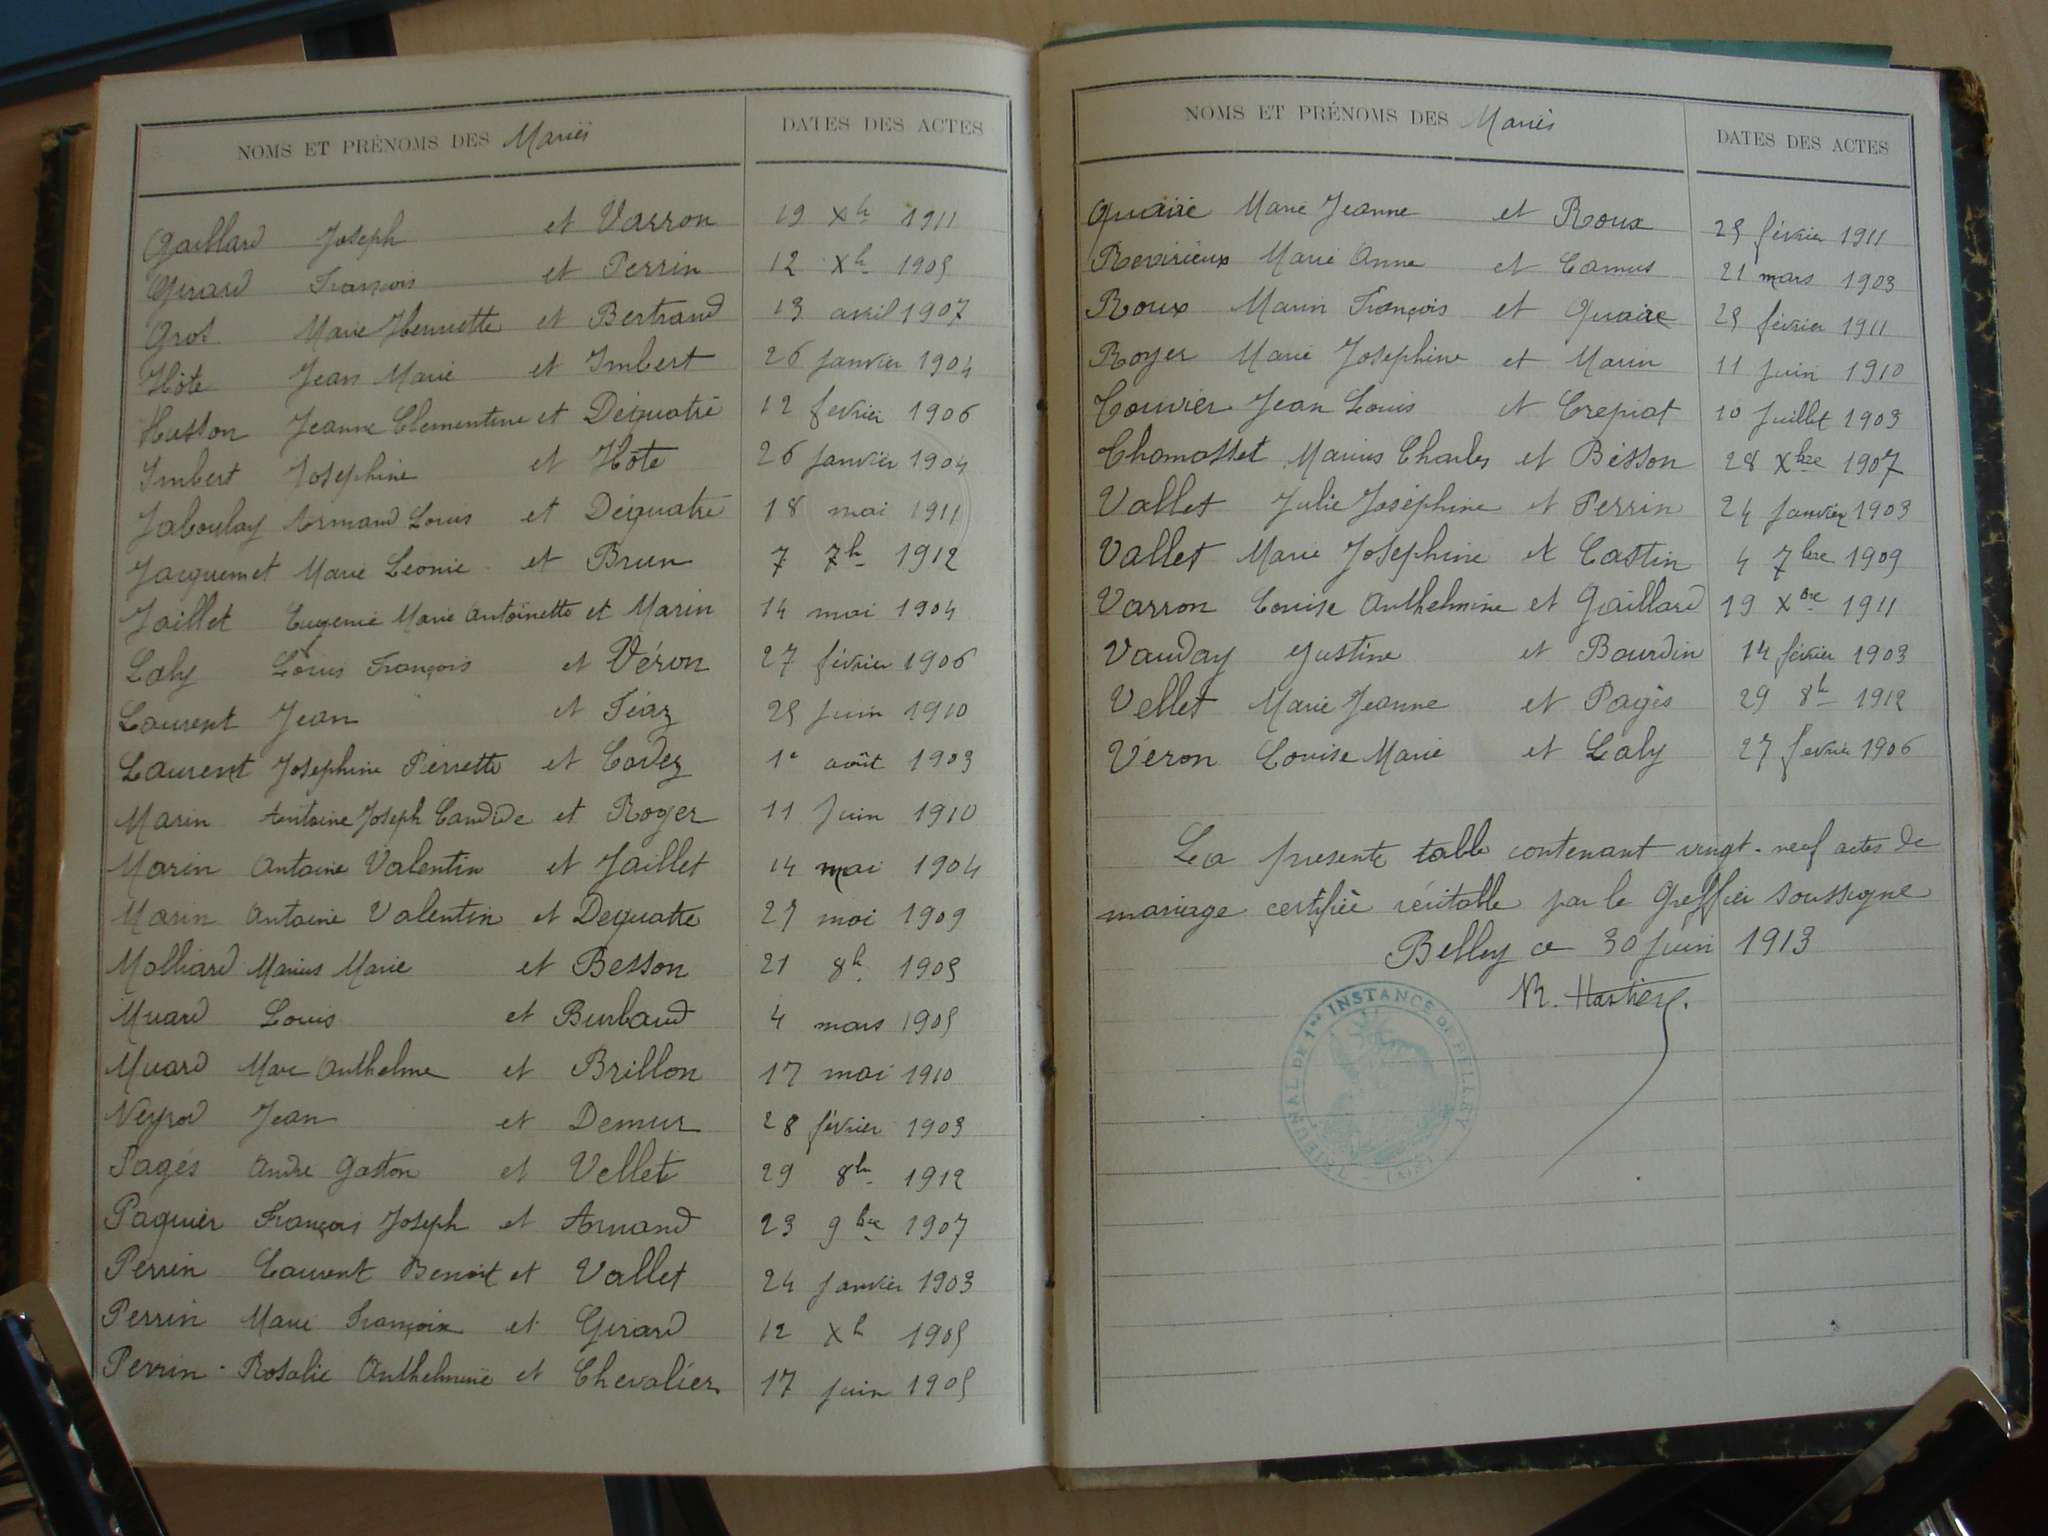 NOMS ET PRÉNOMS DES Mariés DATES DES ACTES
Gaillard Joseph et Varron 19 Xb 1911
Girard François et Perrin 12 Xb 1905
Grot Marie Henriette et Bertrand 13 avril 1907
Hôte Jean Marie et Imbert 26 janvier 1904
Husson Jeanne Clementine et Déquatre 12 fevrier 1906
Imbert Josephine et Hôte 26 janvier 1904
Jaboulay Armand Louis et Déquatre 18 mai 1911
Jacquemet Marie Léonie et Brun 7 7b 1912
Jaillet Eugenie Marie Antoinette et Marin 14 mai 1904
Laly Louis François et Véron 27 février 1906
Laurent Jean et Féaz 25 juin 1910
Laurent Josephine Pierrette et Codez 1e août 1903
Marin Antoine Joseph Candide et Royer 11 juin 1910
Marin Antoine Valentin et Jaillet 14 mai 1904
Marin Antoine Valentin et Dequatre 27 mai 1909
Molliard Marius Marie et Besson 21 8b 1905
Muard Louis et Burbaud 4 mars 1905
Muard Marc Anthelme et Brillon 17 mai 1910
Neyrod Jean et Demur 28 février 1903
Pagés André Gaston et Vellet 29 8b 1912
Paquier François Joseph et Arnaud 23 9bre 1907
Perrin Laurent Benoit et Vallet 24 janvier 1903
Perrin Marie Françoise et Girard 12 Xb 1905
Perrin Rosalie Anthelmine et Chevalier 17 juin 1905
NOMS ET PRÉNOMS DES Mariés DATES DES ACTES
Quaire Marie Jeanne et Roux 25 février 1911
Revirieux Marie Anne et Camus 21 mars 1903
Roux Marin François et Quaire 25 février 1911
Royer Marie Josephine et Marin 11 juin 1910
Touvier Jean Louis et Crepiat 10 juillet 1903
Thomasset Marius Charles et Besson 28 Xbre 1907
Vallet Julie Joséphine et Perrin 24 janvier 1903
Vallet Marie Joséphine et Castin 4 7bre 1909
Varron Louise Anthelmine et Gaillard 19 Xbre 1911
Vauday Justine et Bourdin 14 février 1903
Vellet Marie Jeanne et Pagès 29 8b 1912
Veron Louise Marie et Laly 27 fevrier 1906
La presente table contenant vingt-neuf actes de
mariage certifiée véritable par le Greffier soussigné
Belley ce 30 juin 1913
TRIBUNAL DE 1re INSTANCE DE BELLEY (AIN)